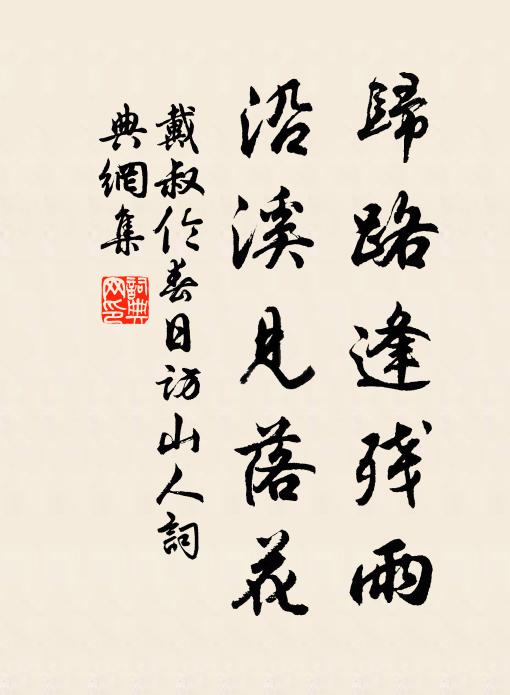 歸路逢殘雨
沿溪見落花
戴叔伦春日访山人詞
典網集
詞典
网印